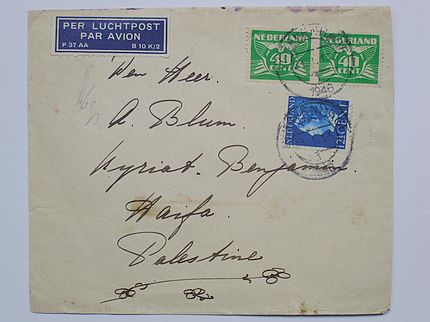 PER LUCHTPOST
PAR AVION
P 37 AA B 10 K/2
NEDERLAND
40
CENT
NEDERLAND
40
CENT
1946
NEDERLAND
12½ CENT
Den Heer.
A. Blum.
Kyriat. Benjamin
Haifa.
Palestine